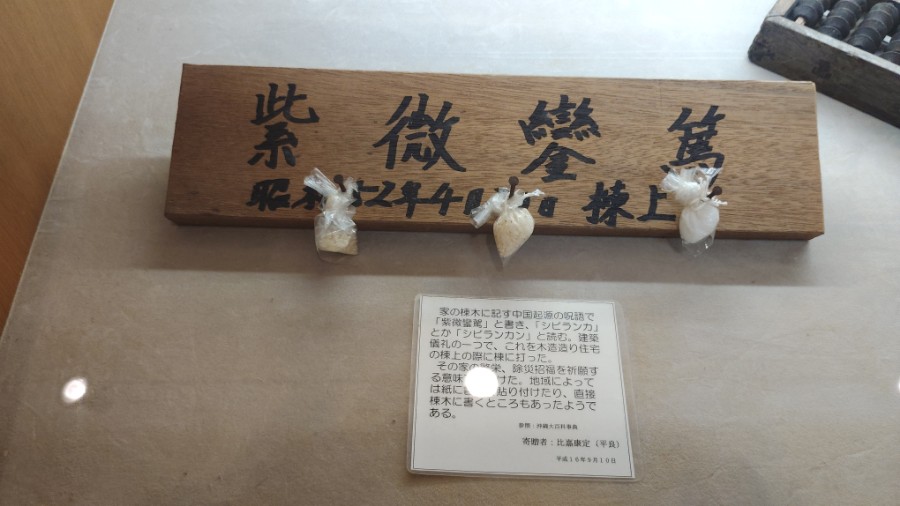 紫微鑾篤
昭和52年4月 日 棟上
家の棟木に記す中国起源の呪語で
「紫微鑾駕」と書き、「シビランカ」
とか「シビランカン」と読む。建築
儀礼の一つで、これを木造造り住宅
の棟上の際に棟に打った。
その家の 栄、除災招福を祈願す
る意味 けた。地域によって
は紙に 貼り付けたり、直接
棟木に書くところもあったようで
ある。
参照：沖縄大百科事典
寄贈者：比嘉康定（平良）
平成16年9月10日